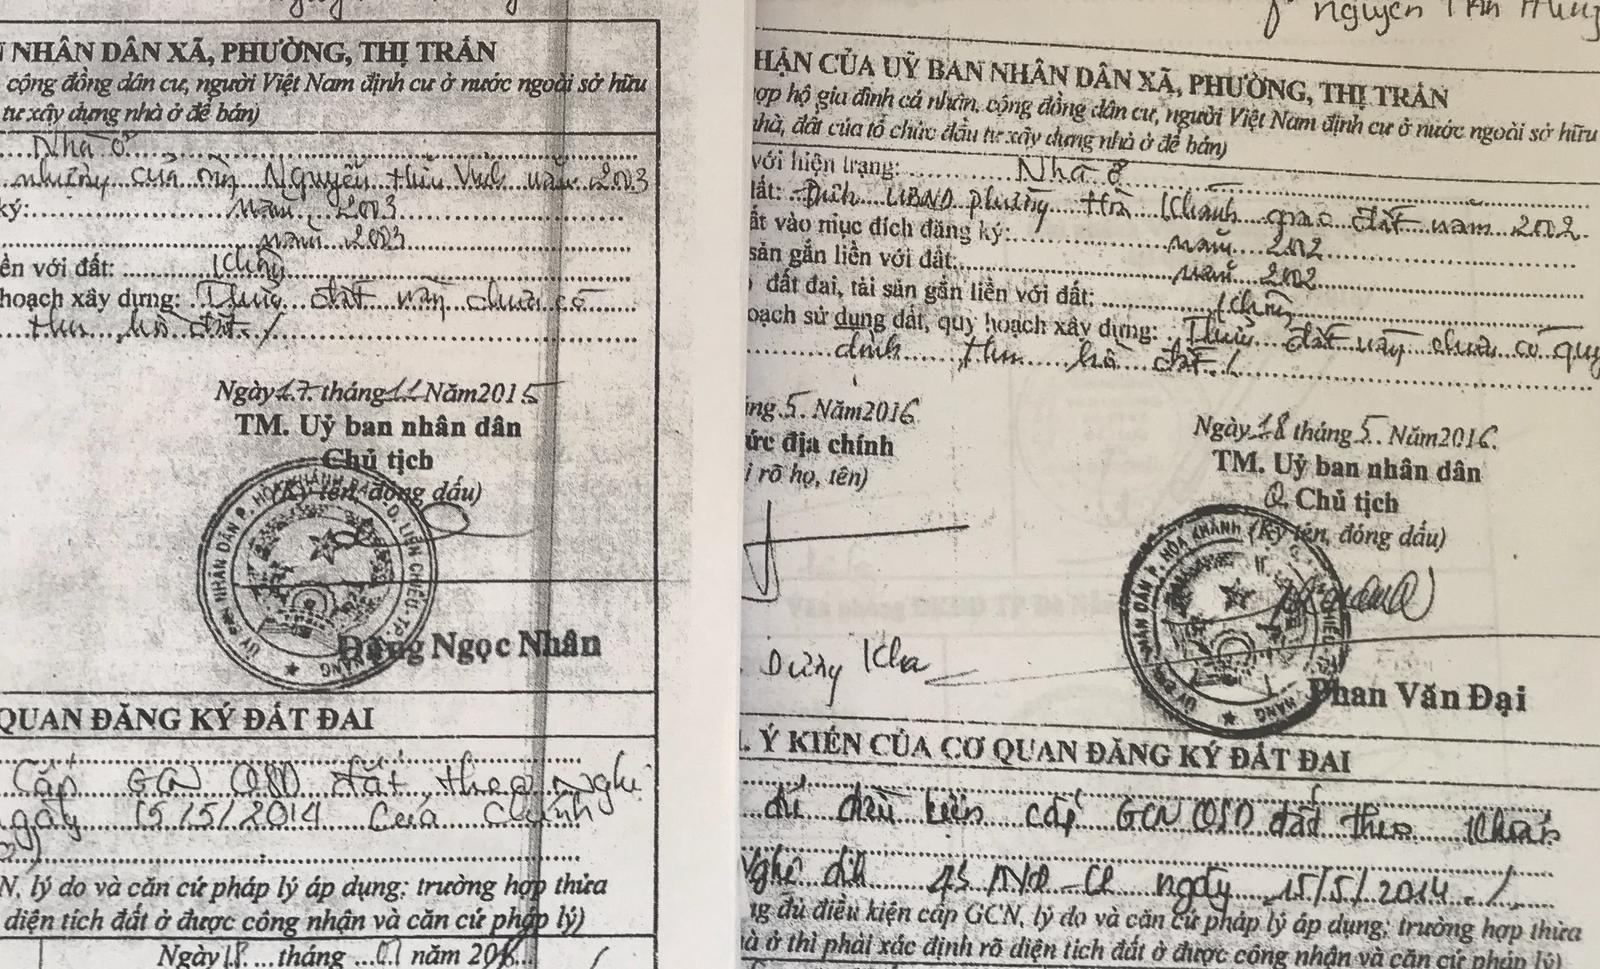 N NHÂN DÂN XÃ, PHƯỜNG, THỊ TRẤN
cộng đồng dân cư, người Việt Nam định cư ở nước ngoài sở hữu
tư xây dựng nhà ở để bán)
Nhà ở
nhường của ông Nguyễn Hữu Vinh năm 2003
ký: năm 2003
năm 2003
ền với đất: Không
hoạch xây dựng: Thửa đất này chưa có
thu hồi đất./
Ngày 17 tháng 11 Năm 2015
TM. Uỷ ban nhân dân
Chủ tịch
(Ký tên, đóng dấu)
UỶ BAN NHÂN DÂN P. HÒA KHÁNH BẮC-Q. LIÊN CHIỂU-TP ĐÀ NẴNG
Đặng Ngọc Nhân
QUAN ĐĂNG KÝ ĐẤT ĐAI
Cấp GCN QSD đất theo Nghị
ngày 15/5/2014 của Chính
N, lý do và căn cứ pháp lý áp dụng; trường hợp thửa
diện tích đất ở được công nhận và căn cứ pháp lý)
Ngày 18 tháng 01 năm 2016
Nguyễn Văn Hùng
HẬN CỦA UỶ BAN NHÂN DÂN XÃ, PHƯỜNG, THỊ TRẤN
ợp hộ gia đình cá nhân, cộng đồng dân cư, người Việt Nam định cư ở nước ngoài sở hữu
nhà, đất của tổ chức đầu tư xây dựng nhà ở để bán)
với hiện trạng: Nhà ở
đất: Được UBND phường Hòa Khánh giao đất năm 2002
ất vào mục đích đăng ký: năm 2002
sản gắn liền với đất: năm 2002
đất đai, tài sản gắn liền với đất: Không
oạch sử dụng đất, quy hoạch xây dựng: Thửa đất này chưa có quy
định thu hồi đất./
áng 5. Năm 2016
ức địa chính
i rõ họ, tên)
Ngày 18 tháng 5. Năm 2016
TM. Uỷ ban nhân dân
Q. Chủ tịch
(Ký tên, đóng dấu)
UỶ BAN NHÂN DÂN P. HÒA KHÁNH
Dương Kha
Phan Văn Đại
. Ý KIẾN CỦA CƠ QUAN ĐĂNG KÝ ĐẤT ĐAI
đủ điều kiện cấp GCN QSD đất theo Khoản
Nghị định 43/NĐ-CP ngày 15/5/2014./
ng đủ điều kiện cấp GCN, lý do và căn cứ pháp lý áp dụng; trường hợp thửa
à ở thì phải xác định rõ diện tích đất ở được công nhận và căn cứ pháp lý)